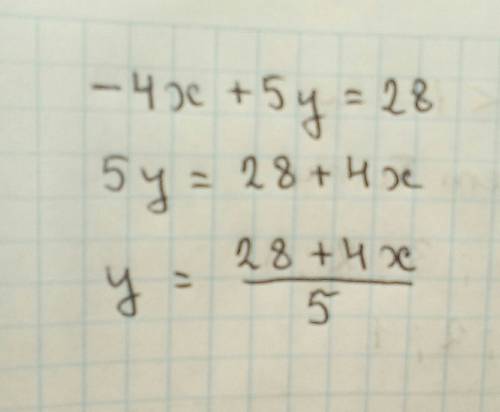 -4x + 5y = 28
5y = 28 + 4x
y = (28 + 4x)/5